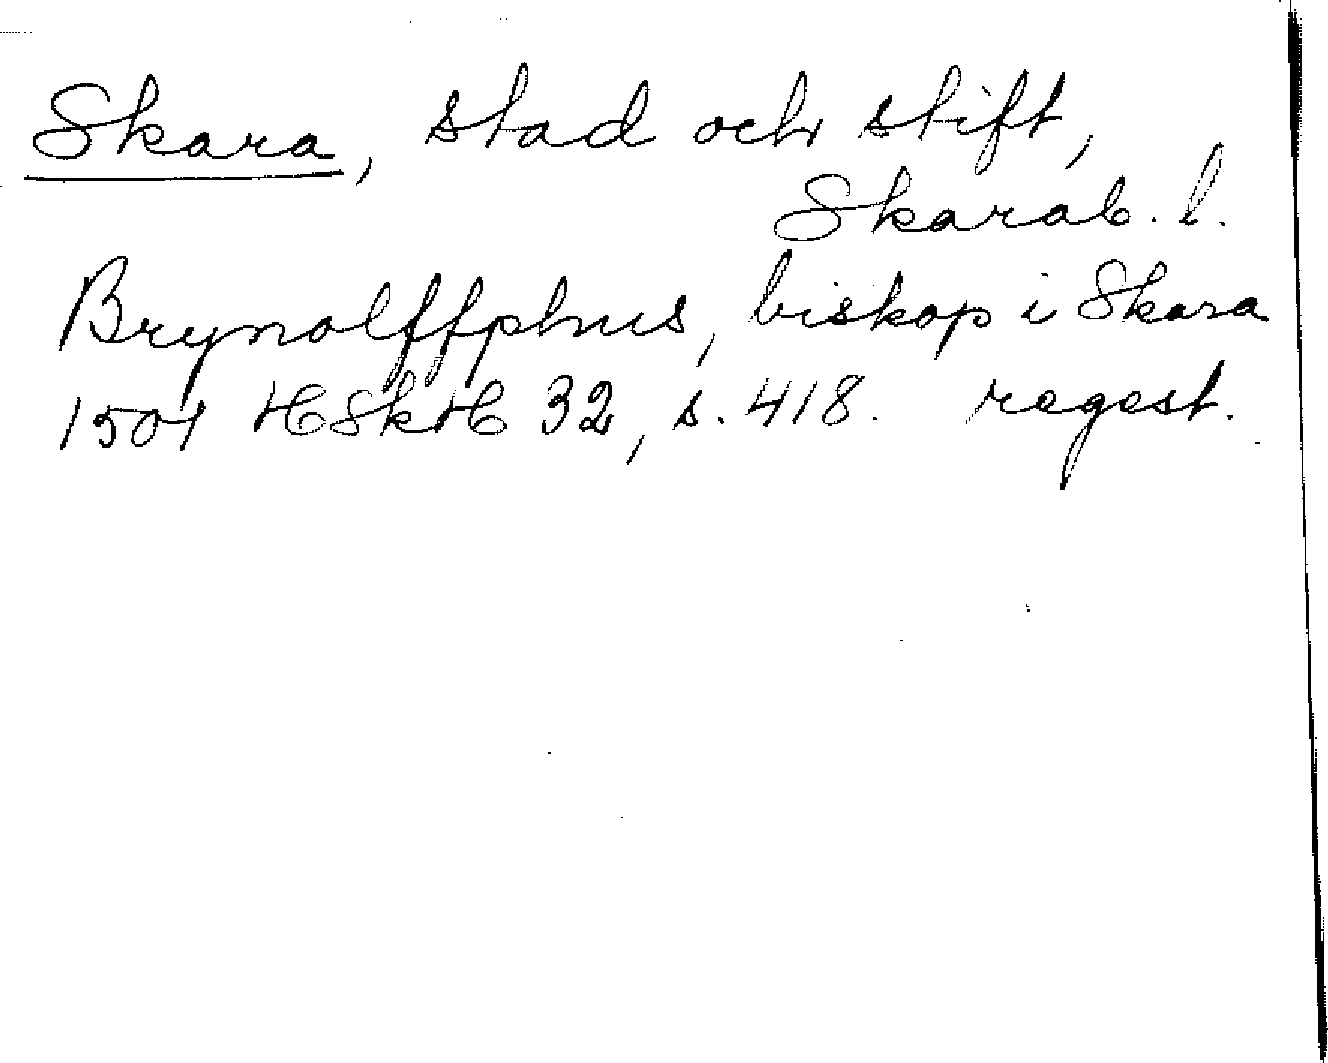 Skara, stad och stift,
Skarab. l.
Brynolffphus, biskop i Skara
1501 HSkH 32, s. 418. regest.